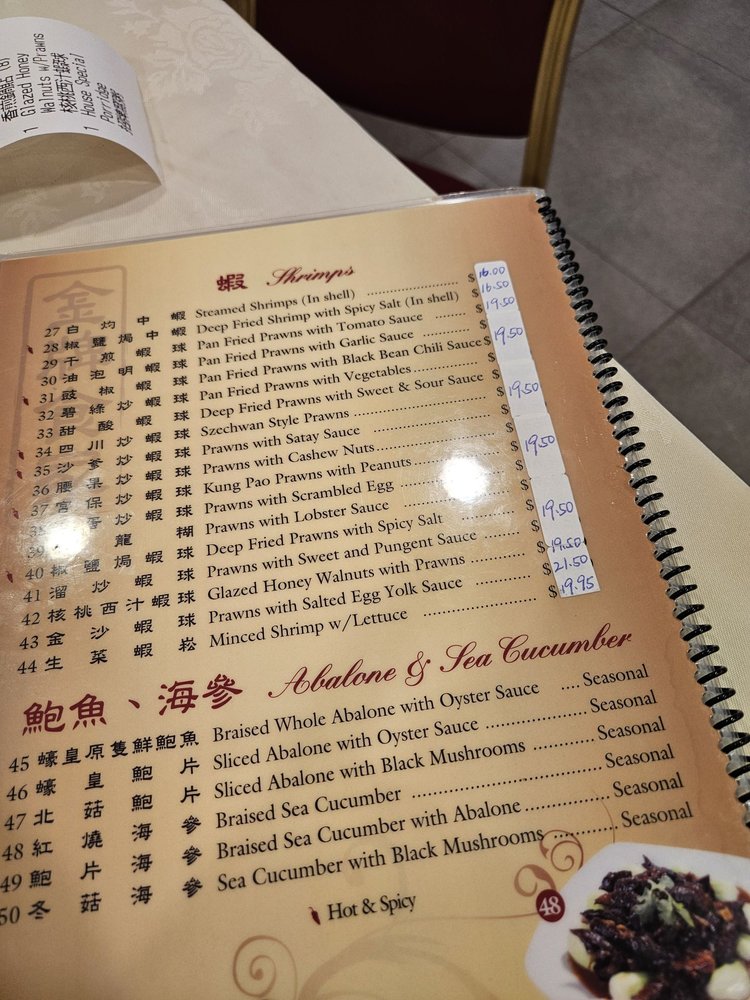 香煎鍋貼 (8)
1 Glazed Honey
Walnuts w/Prawns
核桃西汁蝦球
1 House Special
Porridge
蝦 Shrimps
27 白灼中蝦 Steamed Shrimps (In shell) $ 16.00
28 椒鹽焗中蝦 Deep Fried Shrimp with Spicy Salt (In shell) $ 16.50
29 干煎蝦球 Pan Fried Prawns with Tomato Sauce $ 19.50
30 油泡明蝦球 Pan Fried Prawns with Garlic Sauce $
31 豉椒蝦球 Pan Fried Prawns with Black Bean Chili Sauce $ 19.50
32 碧綠炒蝦球 Pan Fried Prawns with Vegetables $
33 甜酸蝦球 Deep Fried Prawns with Sweet & Sour Sauce $
34 四川炒蝦球 Szechwan Style Prawns $ 19.50
35 沙爹炒蝦球 Prawns with Satay Sauce $
36 腰果炒蝦球 Prawns with Cashew Nuts $
37 宮保炒蝦球 Kung Pao Prawns with Peanuts $ 19.50
38 蛋炒蝦球 Prawns with Scrambled Egg $
39 龍糊 Prawns with Lobster Sauce $
40 椒鹽焗蝦球 Deep Fried Prawns with Spicy Salt $ 19.50
41 溜炒蝦球 Prawns with Sweet and Pungent Sauce $
42 核桃西汁蝦球 Glazed Honey Walnuts with Prawns $ 19.50
43 金沙蝦球 Prawns with Salted Egg Yolk Sauce $ 21.50
44 生菜蝦崧 Minced Shrimp w/Lettuce $ 19.95
鮑魚、海參 Abalone & Sea Cucumber
45 蠔皇原隻鮮鮑魚 Braised Whole Abalone with Oyster Sauce .... Seasonal
46 蠔皇鮑片 Sliced Abalone with Oyster Sauce Seasonal
47 北菇鮑片 Sliced Abalone with Black Mushrooms Seasonal
48 紅燒海參 Braised Sea Cucumber Seasonal
49 鮑片海參 Braised Sea Cucumber with Abalone Seasonal
50 冬菇海參 Sea Cucumber with Black Mushrooms Seasonal
Hot & Spicy
48